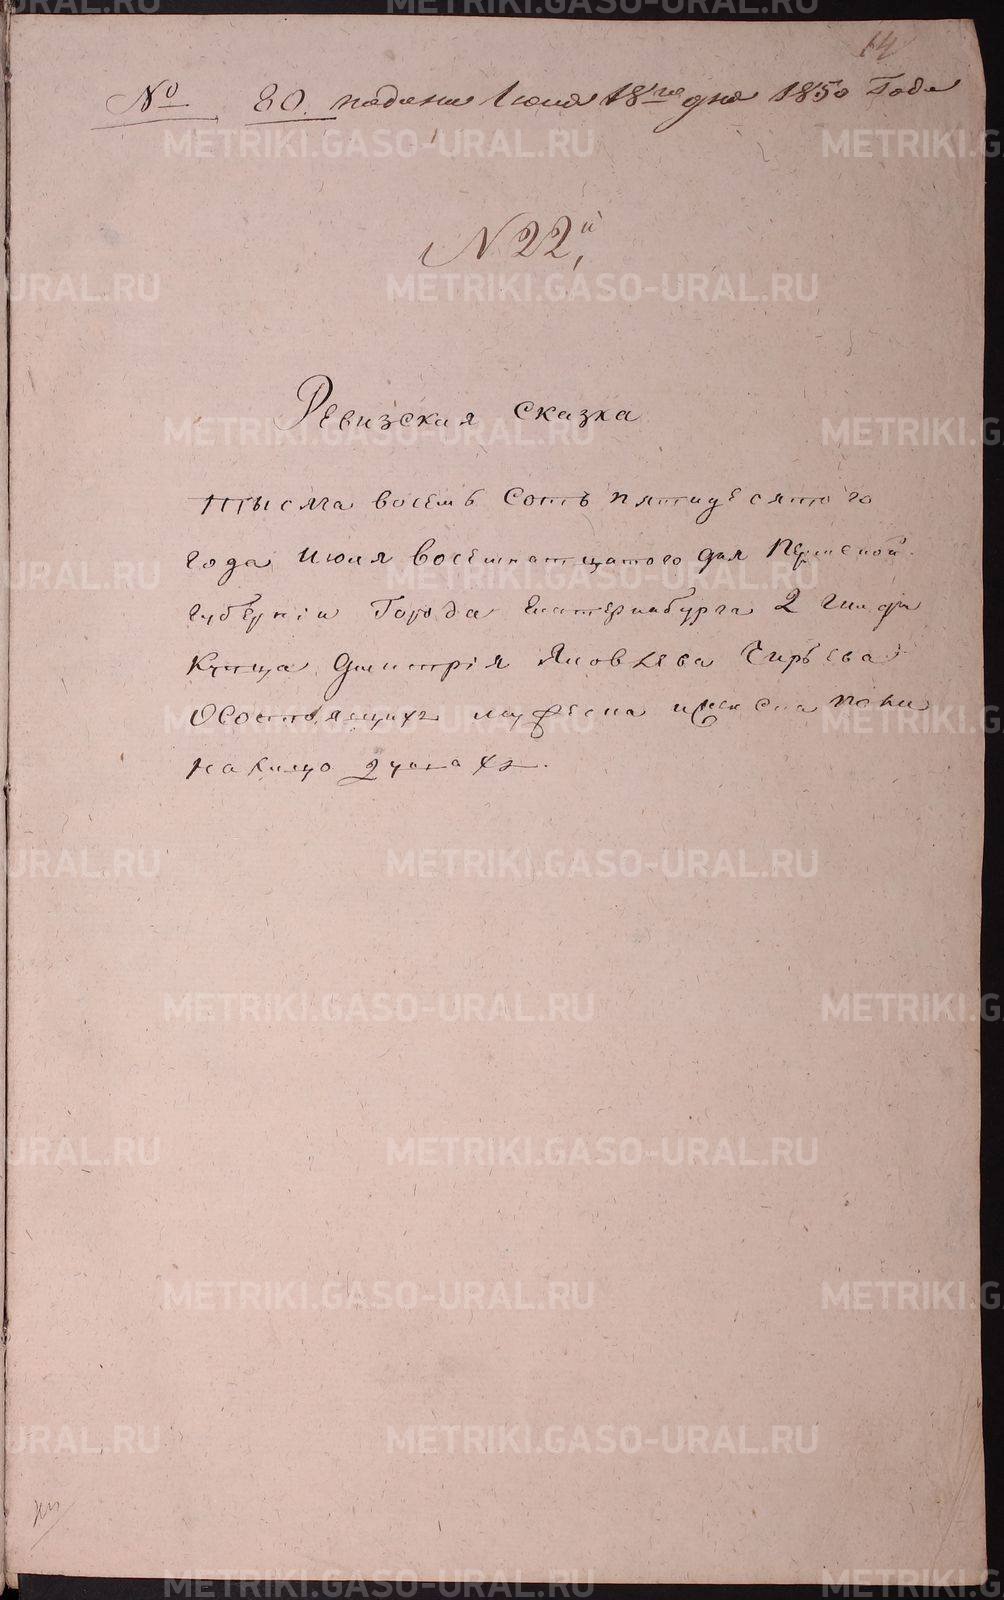 14
№ 80. подана Июля 18го дня 1850 Года
N 22й
Ревизская сказка
тысяча восемь Сотъ пятидесятого
года июля восемнатцатого дня Пермской
губерніи Города Екатеринбурга 2 гилди
Купца Дмитрія Яковлева Чирьева
Осостоящихъ мужеска иженска полу
налицо душахъ.
METRIKI.GASO-URAL.RU